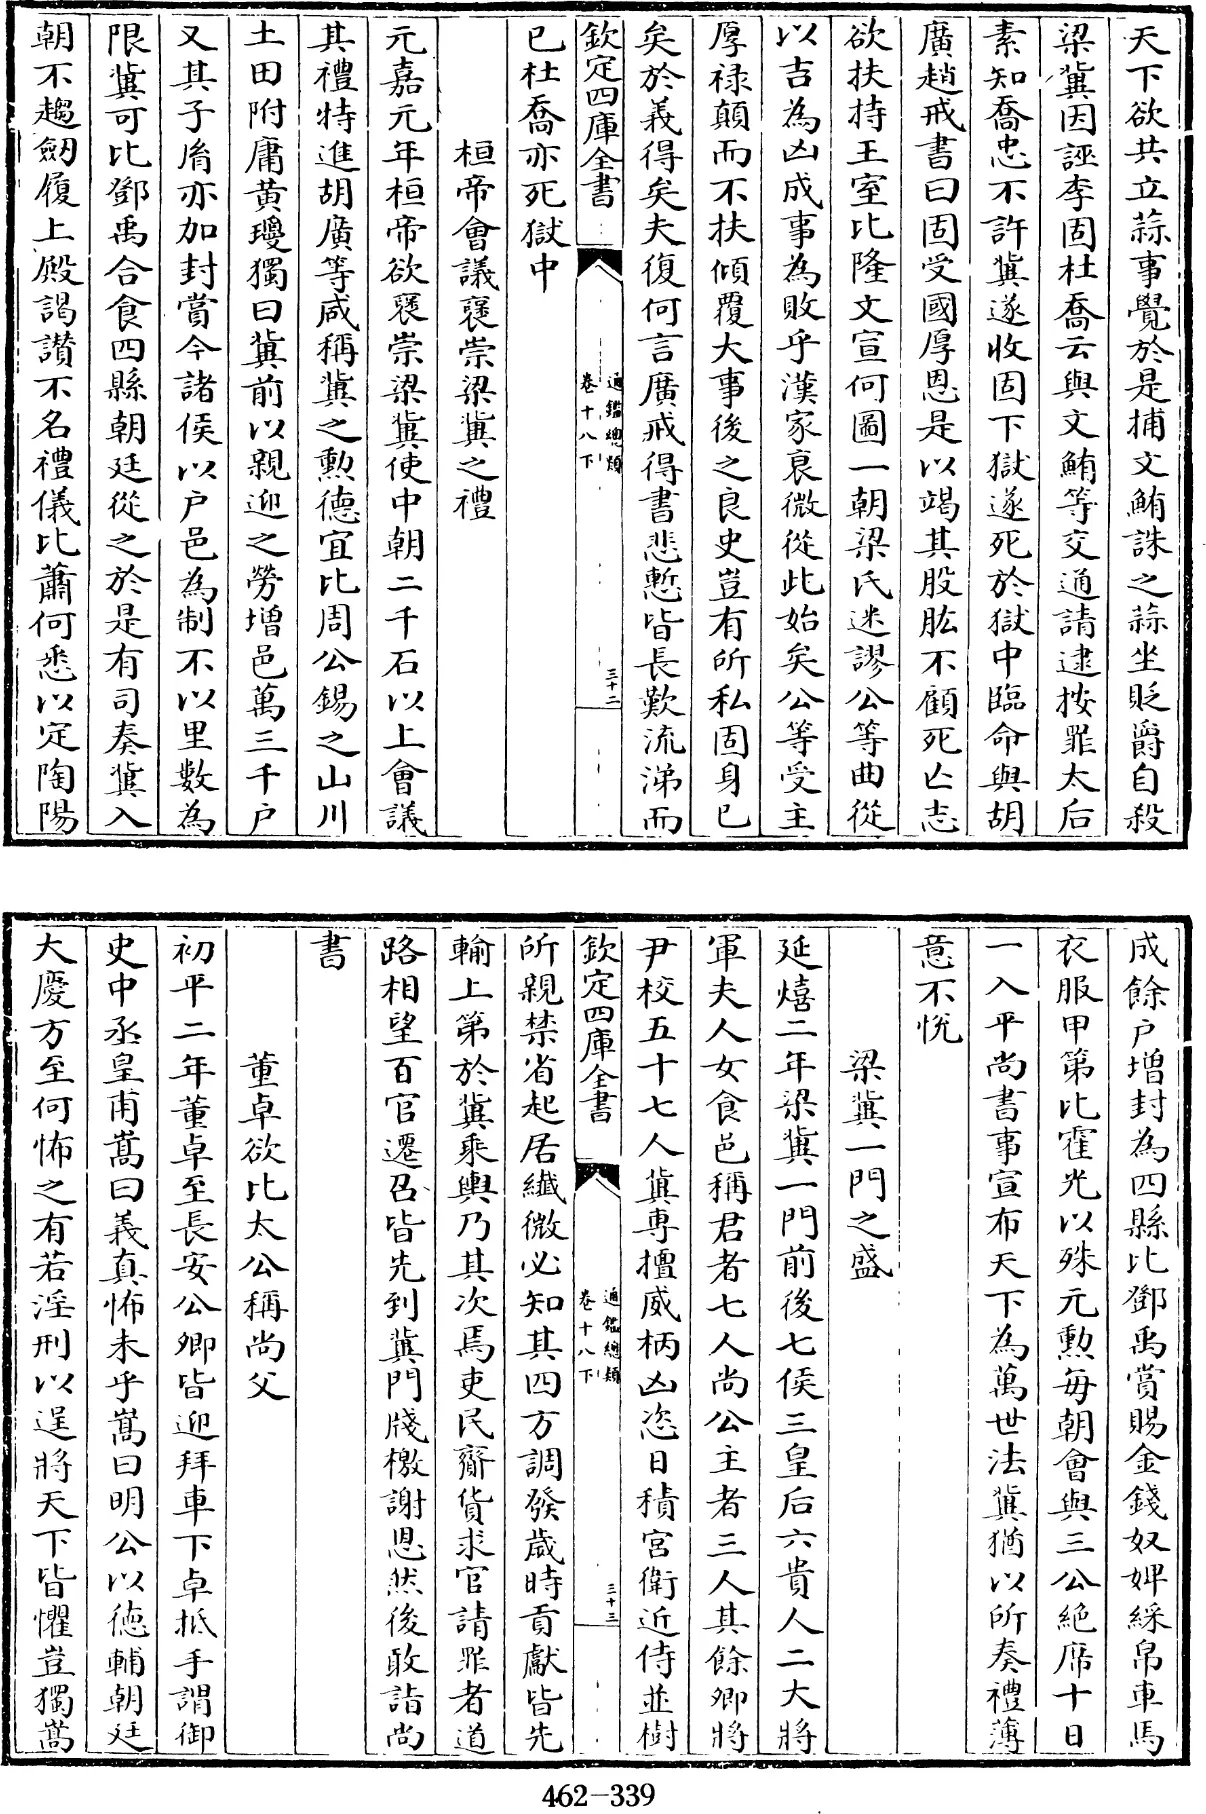 天下欲共立蒜事覺於是捕文鮪誅之蒜坐貶爵自殺
梁冀因誣李固杜喬云與文鮪等交通請逮按罪太后
素知喬忠不許冀遂收固下獄遂死於獄中臨命與胡
廣趙戒書曰固受國厚恩是以竭其股肱不顧死亡志
欲扶持王室比隆文宣何圖一朝梁氏迷謬公等曲從
以吉為凶成事為敗乎漢家衰微從此始矣公等受主
厚禄顛而不扶傾覆大事後之良史豈有所私固身已
矣於義得矣夫復何言廣戒得書悲慙皆長歎流涕而
欽定四庫全書
通鑑總類
卷十八下
三十二
已杜喬亦死獄中
桓帝會議褒崇梁冀之禮
元嘉元年桓帝欲褒崇梁冀使中朝二千石以上會議
其禮特進胡廣等咸稱冀之勲德宜比周公錫之山川
土田附庸黄瓊獨曰冀前以親迎之勞增邑萬三千户
又其子𦙍亦加封賞今諸侯以户邑為制不以里數為
限冀可比鄧禹合食四縣朝廷從之於是有司奏冀入
朝不趨劒履上殿謁讃不名禮儀比蕭何悉以定陶陽
成餘户增封為四縣比鄧禹賞賜金錢奴婢綵帛車馬
衣服甲第比霍光以殊元勲每朝會與三公絶席十日
一入平尚書事宣布天下為萬世法冀猶以所奏禮薄
意不悅
梁冀一門之盛
延熺二年梁冀一門前後七侯三皇后六貴人二大將
軍夫人女食邑稱君者七人尚公主者三人其餘卿將
尹校五十七人冀專擅威柄凶恣日積宮衛近侍並樹
欽定四庫全書
通鑑總類
卷十八下
三十三
所親禁省起居纖微必知其四方調發歲時貢獻皆先
輸上第於冀乘輿乃其次焉吏民齎貨求官請罪者道
路相望百官遷召皆先到冀門牋檄謝恩然後敢詣尚
書
董卓欲比太公稱尚父
初平二年董卓至長安公卿皆迎拜車下卓抵手謂御
史中丞皇甫嵩曰義真怖未乎嵩曰明公以德輔朝廷
大慶方至何怖之有若淫刑以逞將天下皆懼豈獨嵩
462-339